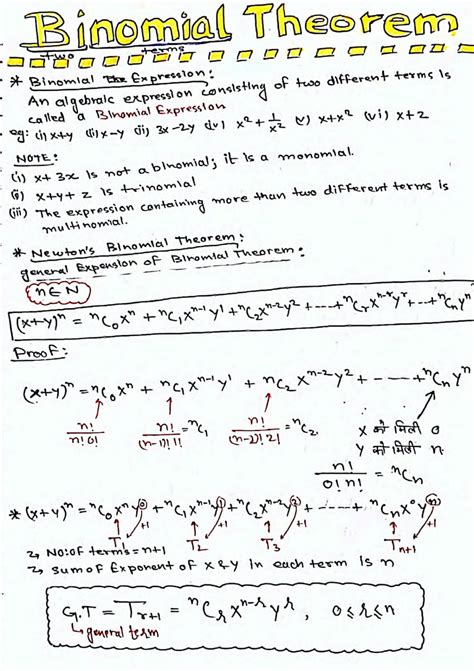 Binomial Theorem
two terms
* Binomial the Expression:
An algebraic expression consisting of two different terms is
called a Binomial Expression
eg: (i) x+y (ii) x-y (iii) 3x-2y (iv) x² + 1/x² (v) x+x² (vi) x+z
NOTE:
(i) x+3x is not a binomial; it is a monomial.
(ii) x+y+z is trinomial
(iii) The expression containing more than two different terms is
multinomial.
* Newton's Binomial Theorem:
general Expension of Binomial Theorem:
n∈N
(x+y)ⁿ = ⁿC₀xⁿ + ⁿC₁xⁿ⁻¹y¹ + ⁿC₂xⁿ⁻²y² + ---- + ⁿCᵣxⁿ⁻ʳyʳ + --- + ⁿCₙyⁿ
Proof:
(x+y)ⁿ = ⁿC₀xⁿ + ⁿC₁xⁿ⁻¹y¹ + ⁿC₂xⁿ⁻²y² + --- --+ ⁿCₙyⁿ
n!/n!0! n!/(n-1)!1! = ⁿC₁ n!/(n-2)!2! = ⁿC₂
x को मिली 0
y को मिली n
n!/0!n! = ⁿCₙ
* (x+y)ⁿ = ⁿC₀xⁿy⁰ + ⁿC₁xⁿ⁻¹y¹ + ⁿC₂xⁿ⁻²y² + ---- -- + ⁿCₙx⁰yⁿ
T₁ +1 T₂ +1 T₃ +1 Tₙ₊₁ +1
↳ NO: of terms = n+1
↳ sum of Exponent of x & y in each term is n
G.T = Tᵣ₊₁ = ⁿCᵣxⁿ⁻ʳyʳ, 0≤r≤n
↳ general term